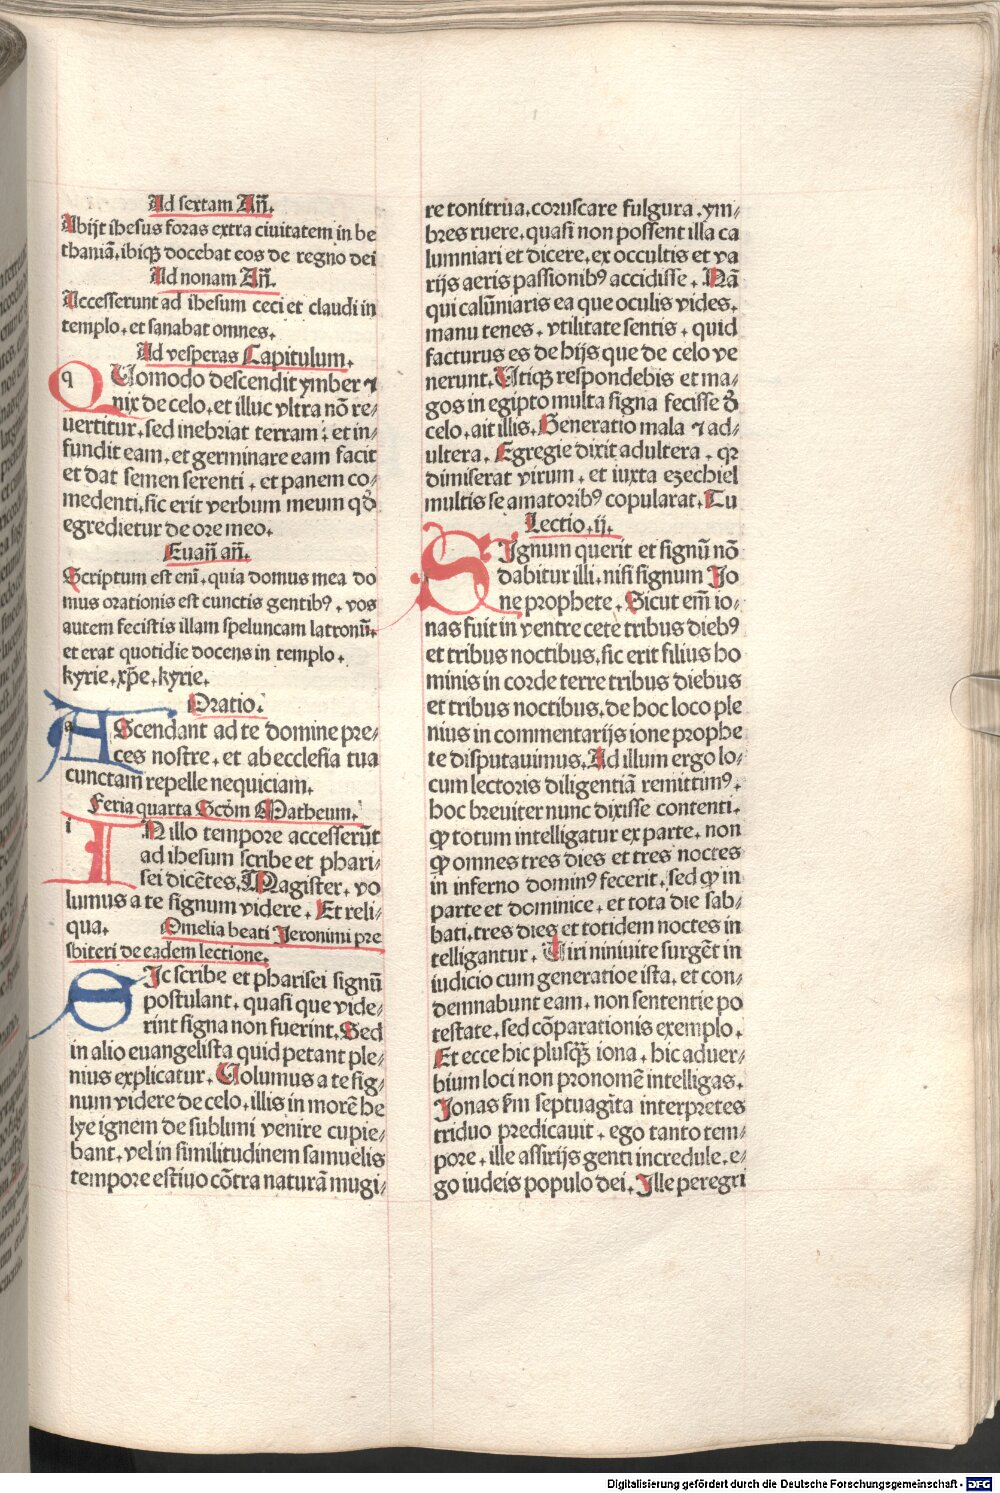 Ad sextam Añ.
Abijt ihesus foras extra ciuitatem in be
thaniā. ibiqꝫ docebat eos de regno dei
Ad nonam Añ.
Accesserunt ad ihesum ceci et claudi in
templo. et sanabat omnes.
Ad vesperas Capitulum.
QUomodo descendit ymber ⁊
nix de celo. et illuc vltra nō re⸗
uertitur. sed inebriat terram: et in⸗
fundit eam. et germinare eam facit
et dat semen serenti. et panem co⸗
medenti. sic erit verbum meum qđ
egredietur de ore meo.
Euañ añ.
Scriptum est enī. quia domus mea do
mus orationis est cunctis gentibꝰ. vos
autem fecistis illam speluncam latronū.
et erat quotidie docens in templo.
kyrie. xp̄e. kyrie.
Oratio.
AScendant ad te domine pre⸗
ces nostre. et ab ecclesia tua
cunctam repelle nequiciam.
Feria quarta Scđm Matheum.
IN illo tempore accesserūt
ad ihesum scribe et phari⸗
sei dicētes. Magister. vo
lumus a te signum videre. Et reli⸗
qua. Omelia beati Jeronimi pre
sbiteri de eadem lectione.
SIc scribe et pharisei signū
postulant. quasi que vide⸗
rint signa non fuerint. Sed
in alio euangelista quid petant ple⸗
nius explicatur. Uolumus a te sig⸗
num videre de celo. illis in morē he
lye ignem de sublimi venire cupie⸗
bant. vel in similitudinem samuelis
tempore estiuo cōtra naturā mugi⸗
re tonitrua. coruscare fulgura. ym⸗
bres ruere. quasi non possent illa ca
lumniari et dicere. ex occultis et va
rijs aeris passionibꝰ accidisse. Nā
qui calūniaris ea que oculis vides.
manu tenes. vtilitate sentis. quid
facturus es de hijs que de celo ve
nerunt. Utiqꝫ respondebis et ma⸗
gos in egipto multa signa fecisse đ
celo. ait illis. Generatio mala ⁊ ad⸗
ultera. Egregie dixit adultera. qꝛ
dimiserat virum. et iuxta ezechiel
multis se amatoribꝰ copularat. Tu
Lectio. ij.
SIgnum querit et signū nō
dabitur illi. nisi signum Jo
ne prophete. Sicut em̄ io⸗
nas fuit in ventre cete tribus diebꝰ
et tribus noctibus. sic erit filius ho
minis in corde terre tribus diebus
et tribus noctibus. de hoc loco ple
nius in commentarijs ione prophe
te disputauimus. Ad illum ergo lo⸗
cum lectoris diligentiā remittimꝰ.
hoc breuiter nunc dixisse contenti.
ꝙ totum intelligatur ex parte. non
ꝙ omnes tres dies et tres noctes
in inferno dominꝰ fecerit. sed ꝙ in
parte et dominice. et tota die sab⸗
bati. tres dies et totidem noctes in
telligantur. Uiri niniuite surgēt in
iudicio cum generatioe ista. et con⸗
demnabunt eam. non sententie po
testate. sed cōparationis exemplo.
Et ecce hic plusqꝫ iona. hic aduer⸗
bium loci non pronomē intelligas.
Jonas s̄m septuagīta interpretes
triduo predicauit. ego tanto tem⸗
pore. ille assirijs genti incredule. e⸗
go iudeis populo dei. Jlle peregri
Digitalisierung gefördert durch die Deutsche Forschungsgemeinschaft - DFG